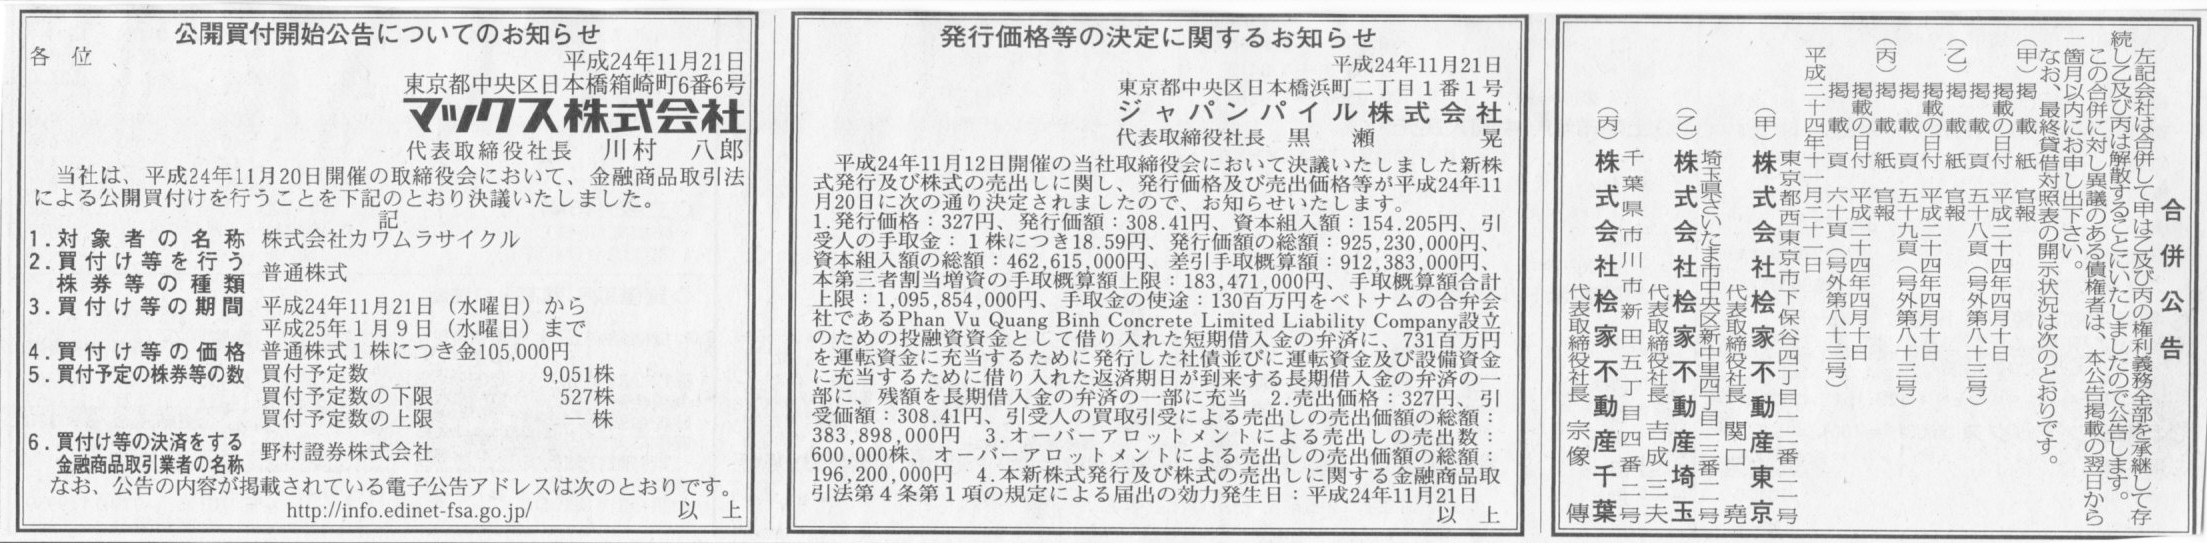 公開買付開始公告についてのお知らせ
各 位
平成24年11月21日
東京都中央区日本橋箱崎町6番6号
マックス株式会社
代表取締役社長 川村 八郎
当社は、平成24年11月20日開催の取締役会において、金融商品取引法
による公開買付けを行うことを下記のとおり決議いたしました。
記
1.対象者の名称 株式会社カワムラサイクル
2.買付け等を行う
株券等の種類 普通株式
3.買付け等の期間 平成24年11月21日（水曜日）から
平成25年1月9日（水曜日）まで
4.買付け等の価格 普通株式1株につき金105,000円
5.買付予定の株券等の数 買付予定数 9,051株
買付予定数の下限 527株
買付予定数の上限 ―株
6.買付け等の決済をする
金融商品取引業者の名称 野村證券株式会社
なお、公告の内容が掲載されている電子公告アドレスは次のとおりです。
http://info.edinet-fsa.go.jp/ 以 上
発行価格等の決定に関するお知らせ
平成24年11月21日
東京都中央区日本橋浜町二丁目1番1号
ジャパンパイル株式会社
代表取締役社長 黒 瀬 晃
平成24年11月12日開催の当社取締役会において決議いたしました新株
式発行及び株式の売出しに関し、発行価格及び売出価格等が平成24年11
月20日に次の通り決定されましたので、お知らせいたします。
1.発行価格：327円、発行価額：308.41円、資本組入額：154.205円、引
受人の手取金：1株につき18.59円、発行価額の総額：925,230,000円、
資本組入額の総額：462,615,000円、差引手取概算額：912,383,000円、
本第三者割当増資の手取概算額上限：183,471,000円、手取概算額合計
上限：1,095,854,000円、手取金の使途：130百万円をベトナムの合弁会
社であるPhan Vu Quang Binh Concrete Limited Liability Company設立
のための投融資資金として借り入れた短期借入金の弁済に、731百万円
を運転資金に充当するために発行した社債並びに運転資金及び設備資金
に充当するために借り入れた返済期日が到来する長期借入金の弁済の一
部に、残額を長期借入金の弁済の一部に充当 2.売出価格：327円、引
受価額：308.41円、引受人の買取引受による売出しの売出価額の総額：
383,898,000円 3.オーバーアロットメントによる売出しの売出数：
600,000株、オーバーアロットメントによる売出しの売出価額の総額：
196,200,000円 4.本新株式発行及び株式の売出しに関する金融商品取
引法第4条第1項の規定による届出の効力発生日：平成24年11月21日
以 上
合併公告
左記会社は合併して甲は乙及び丙の権利義務全部を承継して存
続し乙及び丙は解散することにいたしましたので公告します。
この合併に対し異議のある債権者は、本公告掲載の翌日から
一箇月以内にお申し出下さい。
なお、最終貸借対照表の開示状況は次のとおりです。
（甲）掲載紙 官報
掲載の日付 平成二十四年四月十日
掲載頁 五十八頁（号外第八十三号）
（乙）掲載紙 官報
掲載の日付 平成二十四年四月十日
掲載頁 五十九頁（号外第八十三号）
（丙）掲載紙 官報
掲載の日付 平成二十四年四月十日
掲載頁 六十頁（号外第八十三号）
平成二十四年十一月二十一日
東京都西東京市下保谷四丁目一二番二一号
（甲） 株式会社桧家不動産東京
代表取締役社長 関口 堯
埼玉県さいたま市中央区新中里四丁目一三番一一号
（乙） 株式会社桧家不動産埼玉
代表取締役社長 吉成 三夫
千葉県市川市新田五丁目四番二号
（丙） 株式会社桧家不動産千葉
代表取締役社長 宗像 傳